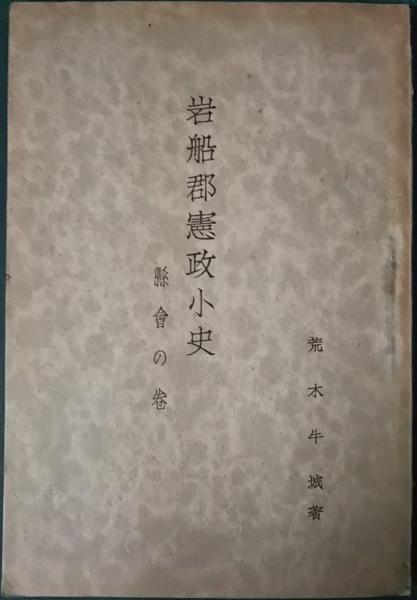 荒木牛城著
岩船郡憲政小史
縣會の卷